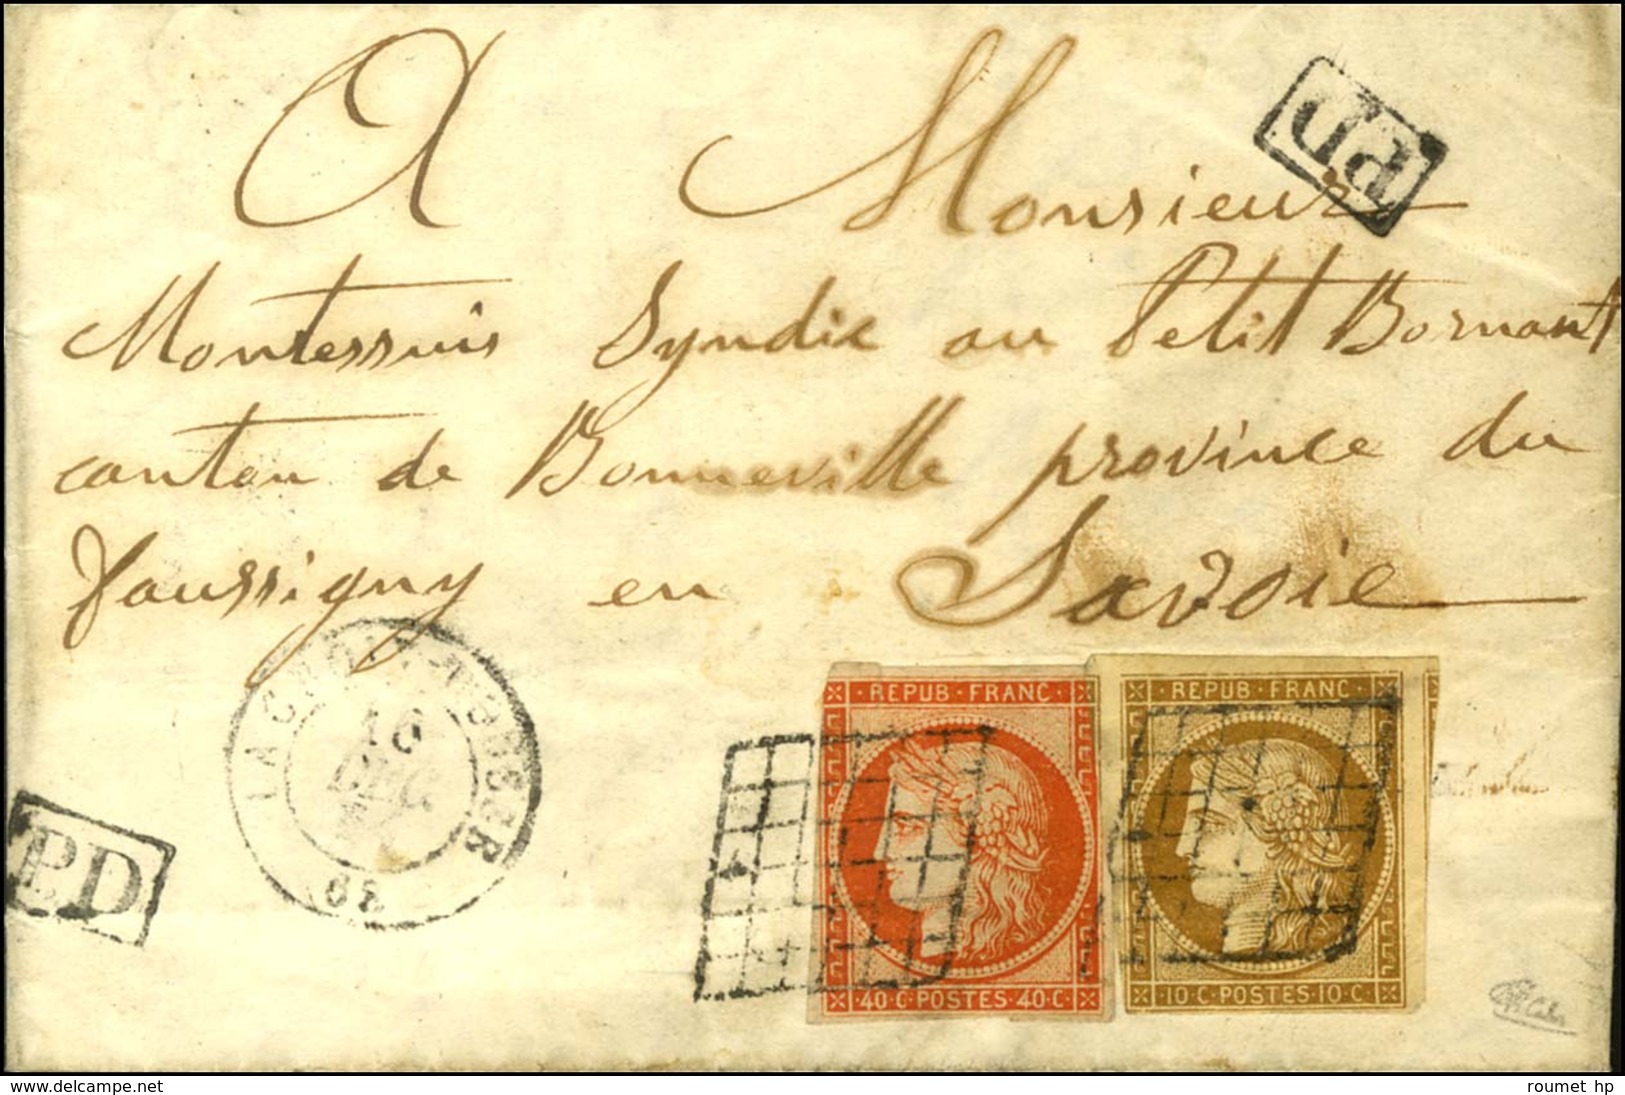 A Monsieur
PD
Montessuis Syndic au Petit Bornant
canton de Bonneville province du
Faussigny en Savoie
16
DEC
68
PD
REPUB·FRANC
40·C·POSTES·40·C
REPUB·FRANC
10·C·POSTES·10·C
www.delcampe.net
roumet hp